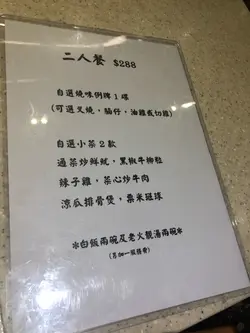 二人餐 $288
自選燒味例牌1碟
(可選叉燒，腩仔，油雞或切雞)
自選小菜2款
通菜炒鮮魷，黑椒牛柳粒
辣子雞，菜心炒牛肉
涼瓜排骨煲，粟米斑球
*白飯兩碗及老火靚湯兩碗*
(另加一服務費)